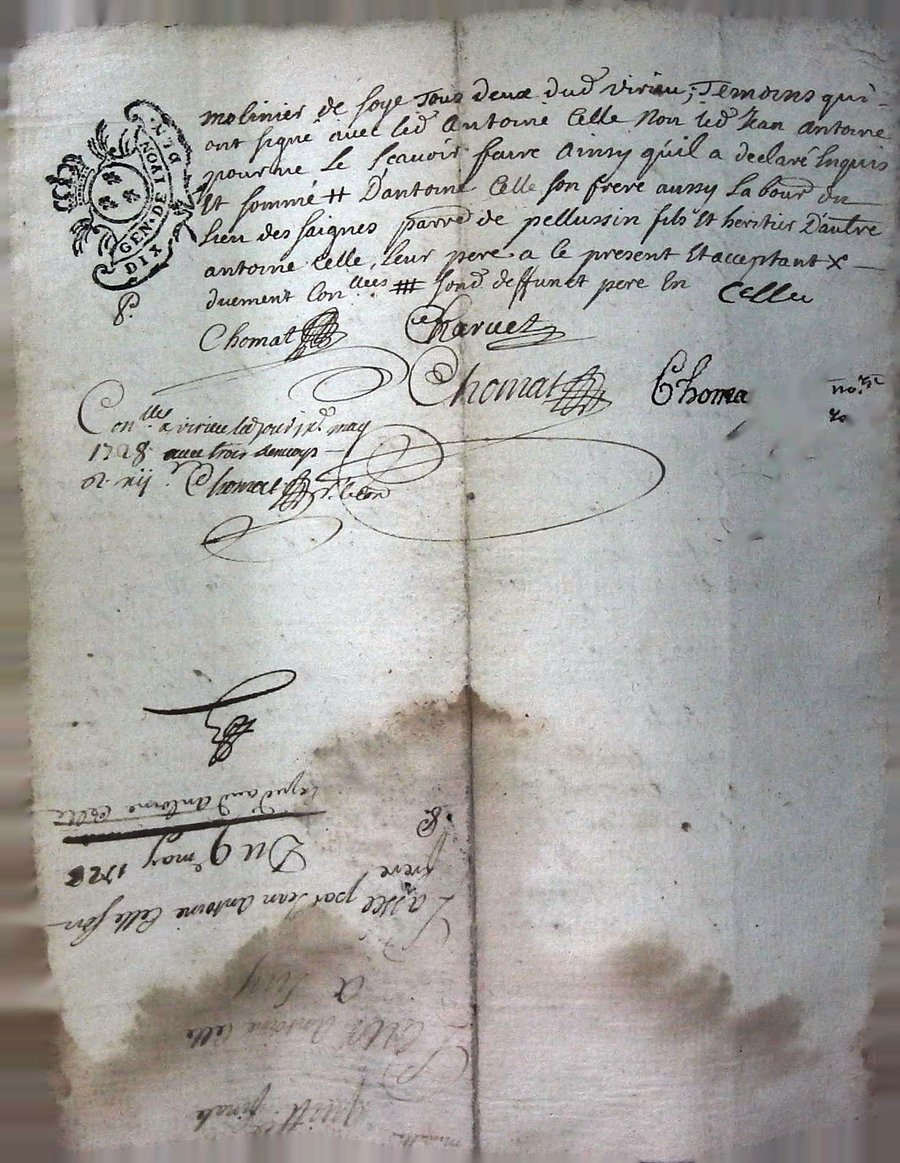 molinier de soye Tous deux dud virieu; Temoins qui
ont signe avec led Antoine Celle Non led Jean Antoine
pour ne le scavoir faire Ainsy qu'il a declaré Enquis
Et sommé # D'antoine Celle son frere aussy Labour du
Lieu des saignes parr̄e de pellussin fils Et heritier D'autre
antoine Celle, leur pere a ce present Et acceptant X
duement Con.llees # sond deffunct pere En Celle
GEN. DE LYON
DIX
Chomat Charvet
Chomat Choma no.re
Con.llé a virieu led jour may
1728 avec trois
Chomat
lequd aud Antoine Celle
Du 9e may 1728
frere
passée par Jean Antoine Celle son
a luy
Antoine Celle
Quitt finale